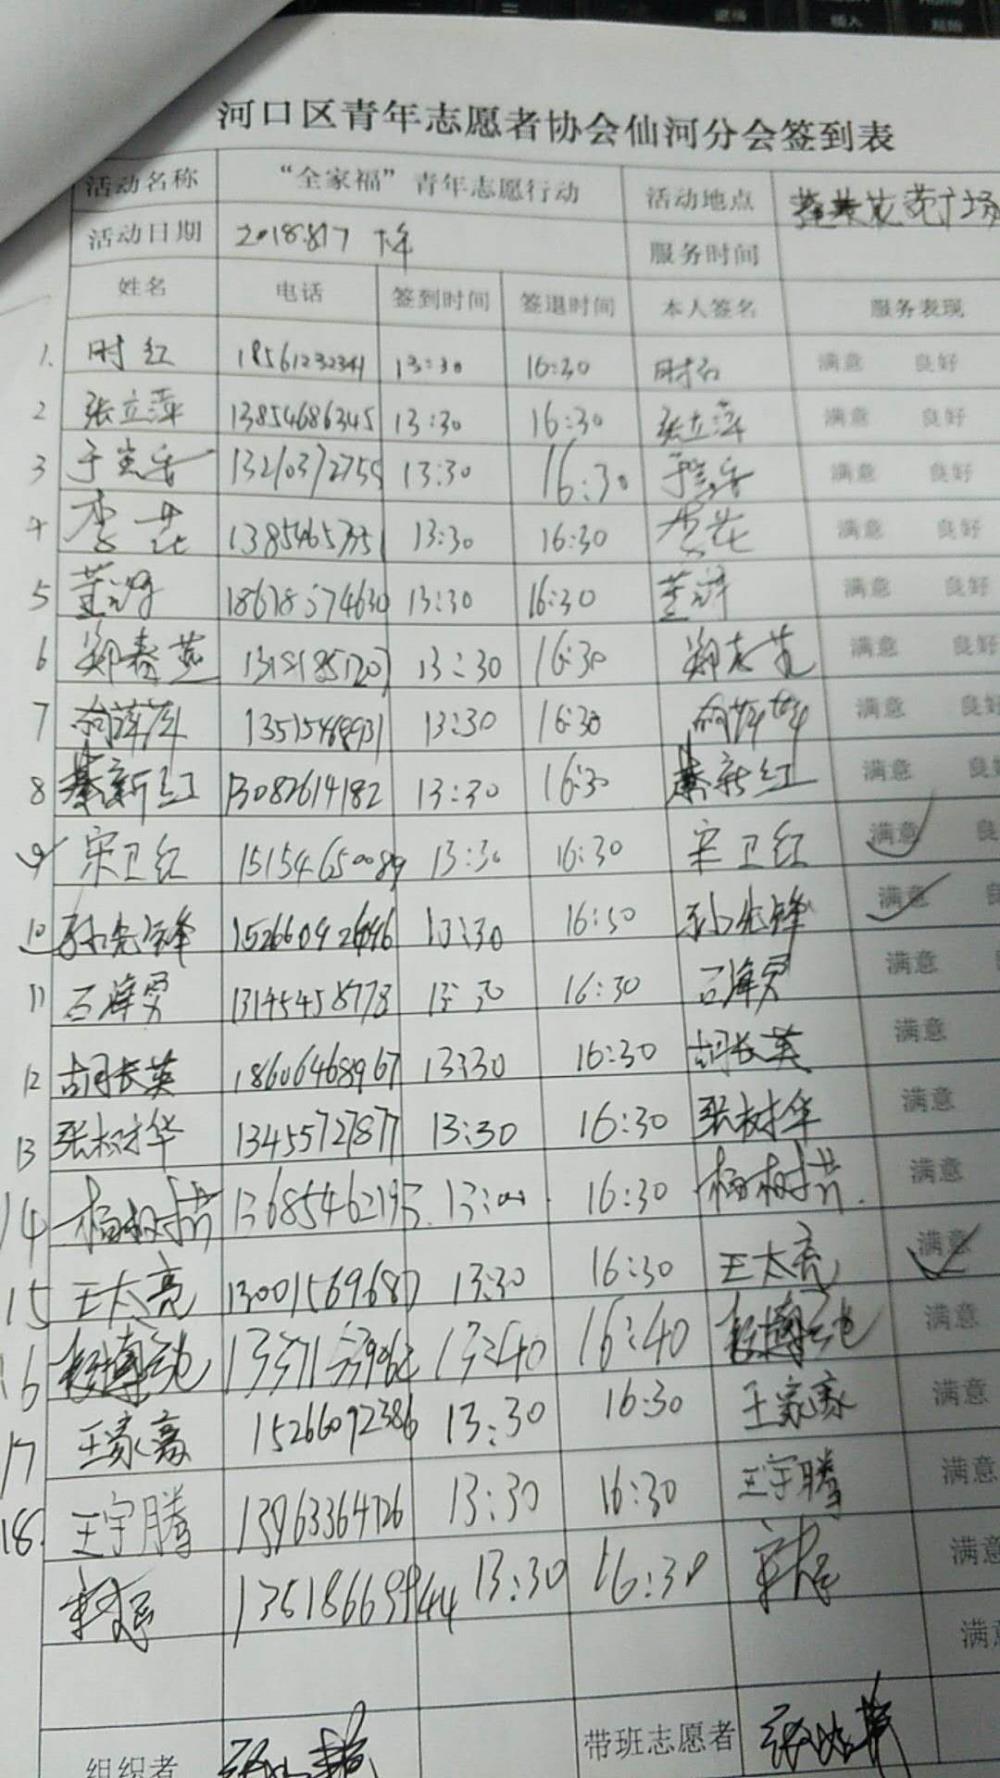 河口区青年志愿者协会仙河分会签到表
活动名称 “全家福”青年志愿行动 活动地点 广场
活动日期 2018.8.17 下午 服务时间
姓名 电话 签到时间 签退时间 本人签名 服务表现
1. 时红 18561232341 13:30 16:30 时红 满意 良好
2 张立萍 13854686345 13:30 16:30 张立萍 满意 良好
3 13210372755 13:30 16:30 满意 良好
4 李花 13:30 16:30 李花 满意 良好
5 18678574630 13:30 16:30 满意 良好
6 郑春燕 13:30 16:30 满意 良好
7 13:30 16:30 满意 良好
8 綦新红 13082614182 13:30 16:30 綦新红 满意 良
9 宋卫红 15154650089 13:30 16:30 宋卫红 满意 良
10 孙先锋 13:30 16:30 孙先锋 满意
11 石海勇 13145458778 13:30 16:30 石海勇 满意
12 胡长英 18606468967 13:30 16:30 胡长英 满意
13 张树华 13455727877 13:30 16:30 张树华 满意
14 杨树芹 13685462195 16:30 杨树芹 满意
15 王太亮 13001569687 13:30 16:30 王太亮 满意
16 13:40 16:40 满意
17 王家 15266092386 13:30 16:30 王家 满意
18. 王宇腾 13963364726 13:30 16:30 王宇腾 满意
13518669944 13:30 16:30 满意
满意
组织者 带班志愿者